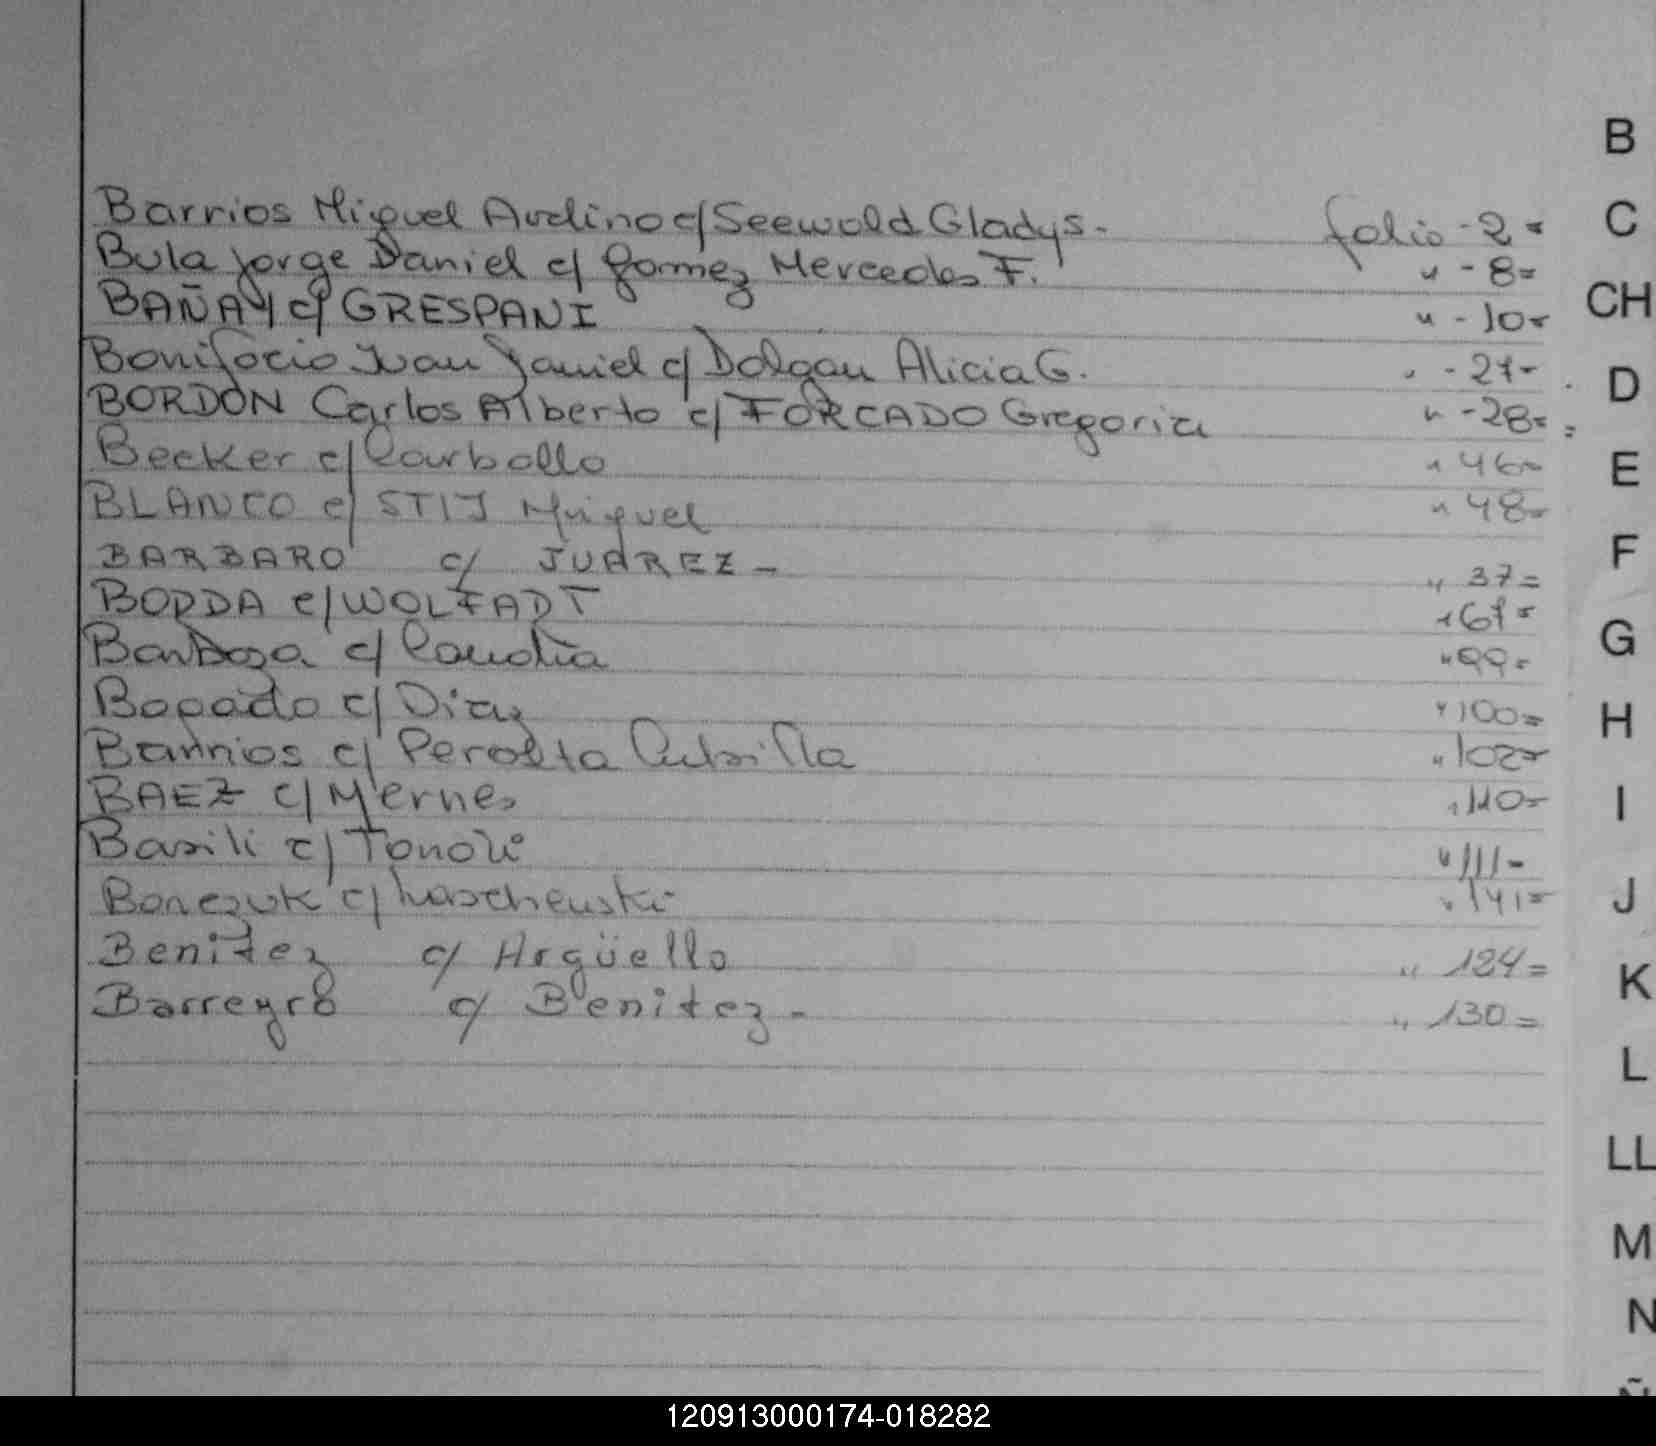 B
Barrios Miguel Avelino c/ Seewald Gladys.- folio - 2 =
C
Bula Jorge Daniel c/ Gomez Mercedes F. " - 8 =
BAÑAY c/ GRESPANI " - 10 =
CH
Bonifacio Juan Daniel c/ Dolgau Alicia G. " - 27 -
D
BORDON Carlos Alberto c/ FORCADO Gregoria " - 28 =
Becker c/ Carballo " 46 =
E
BLANCO c/ STIJ Miguel " 48 =
BARBARO c/ JUAREZ - " 37 =
F
BORDA c/ WOLFADT " 67 =
G
Barboza c/ Candia " 99 =
Bogado c/ Diaz " 100 =
H
Barrios c/ Peralta " 102 =
BAEZ c/ Mernes " 110 =
I
Basili c/ Tonoli " 111 -
c/ " 141 =
J
Benitez c/ Argüello " 124 =
K
Barreyro c/ Benitez - " 130 =
L
LL
M
N
Ñ
120913000174-018282